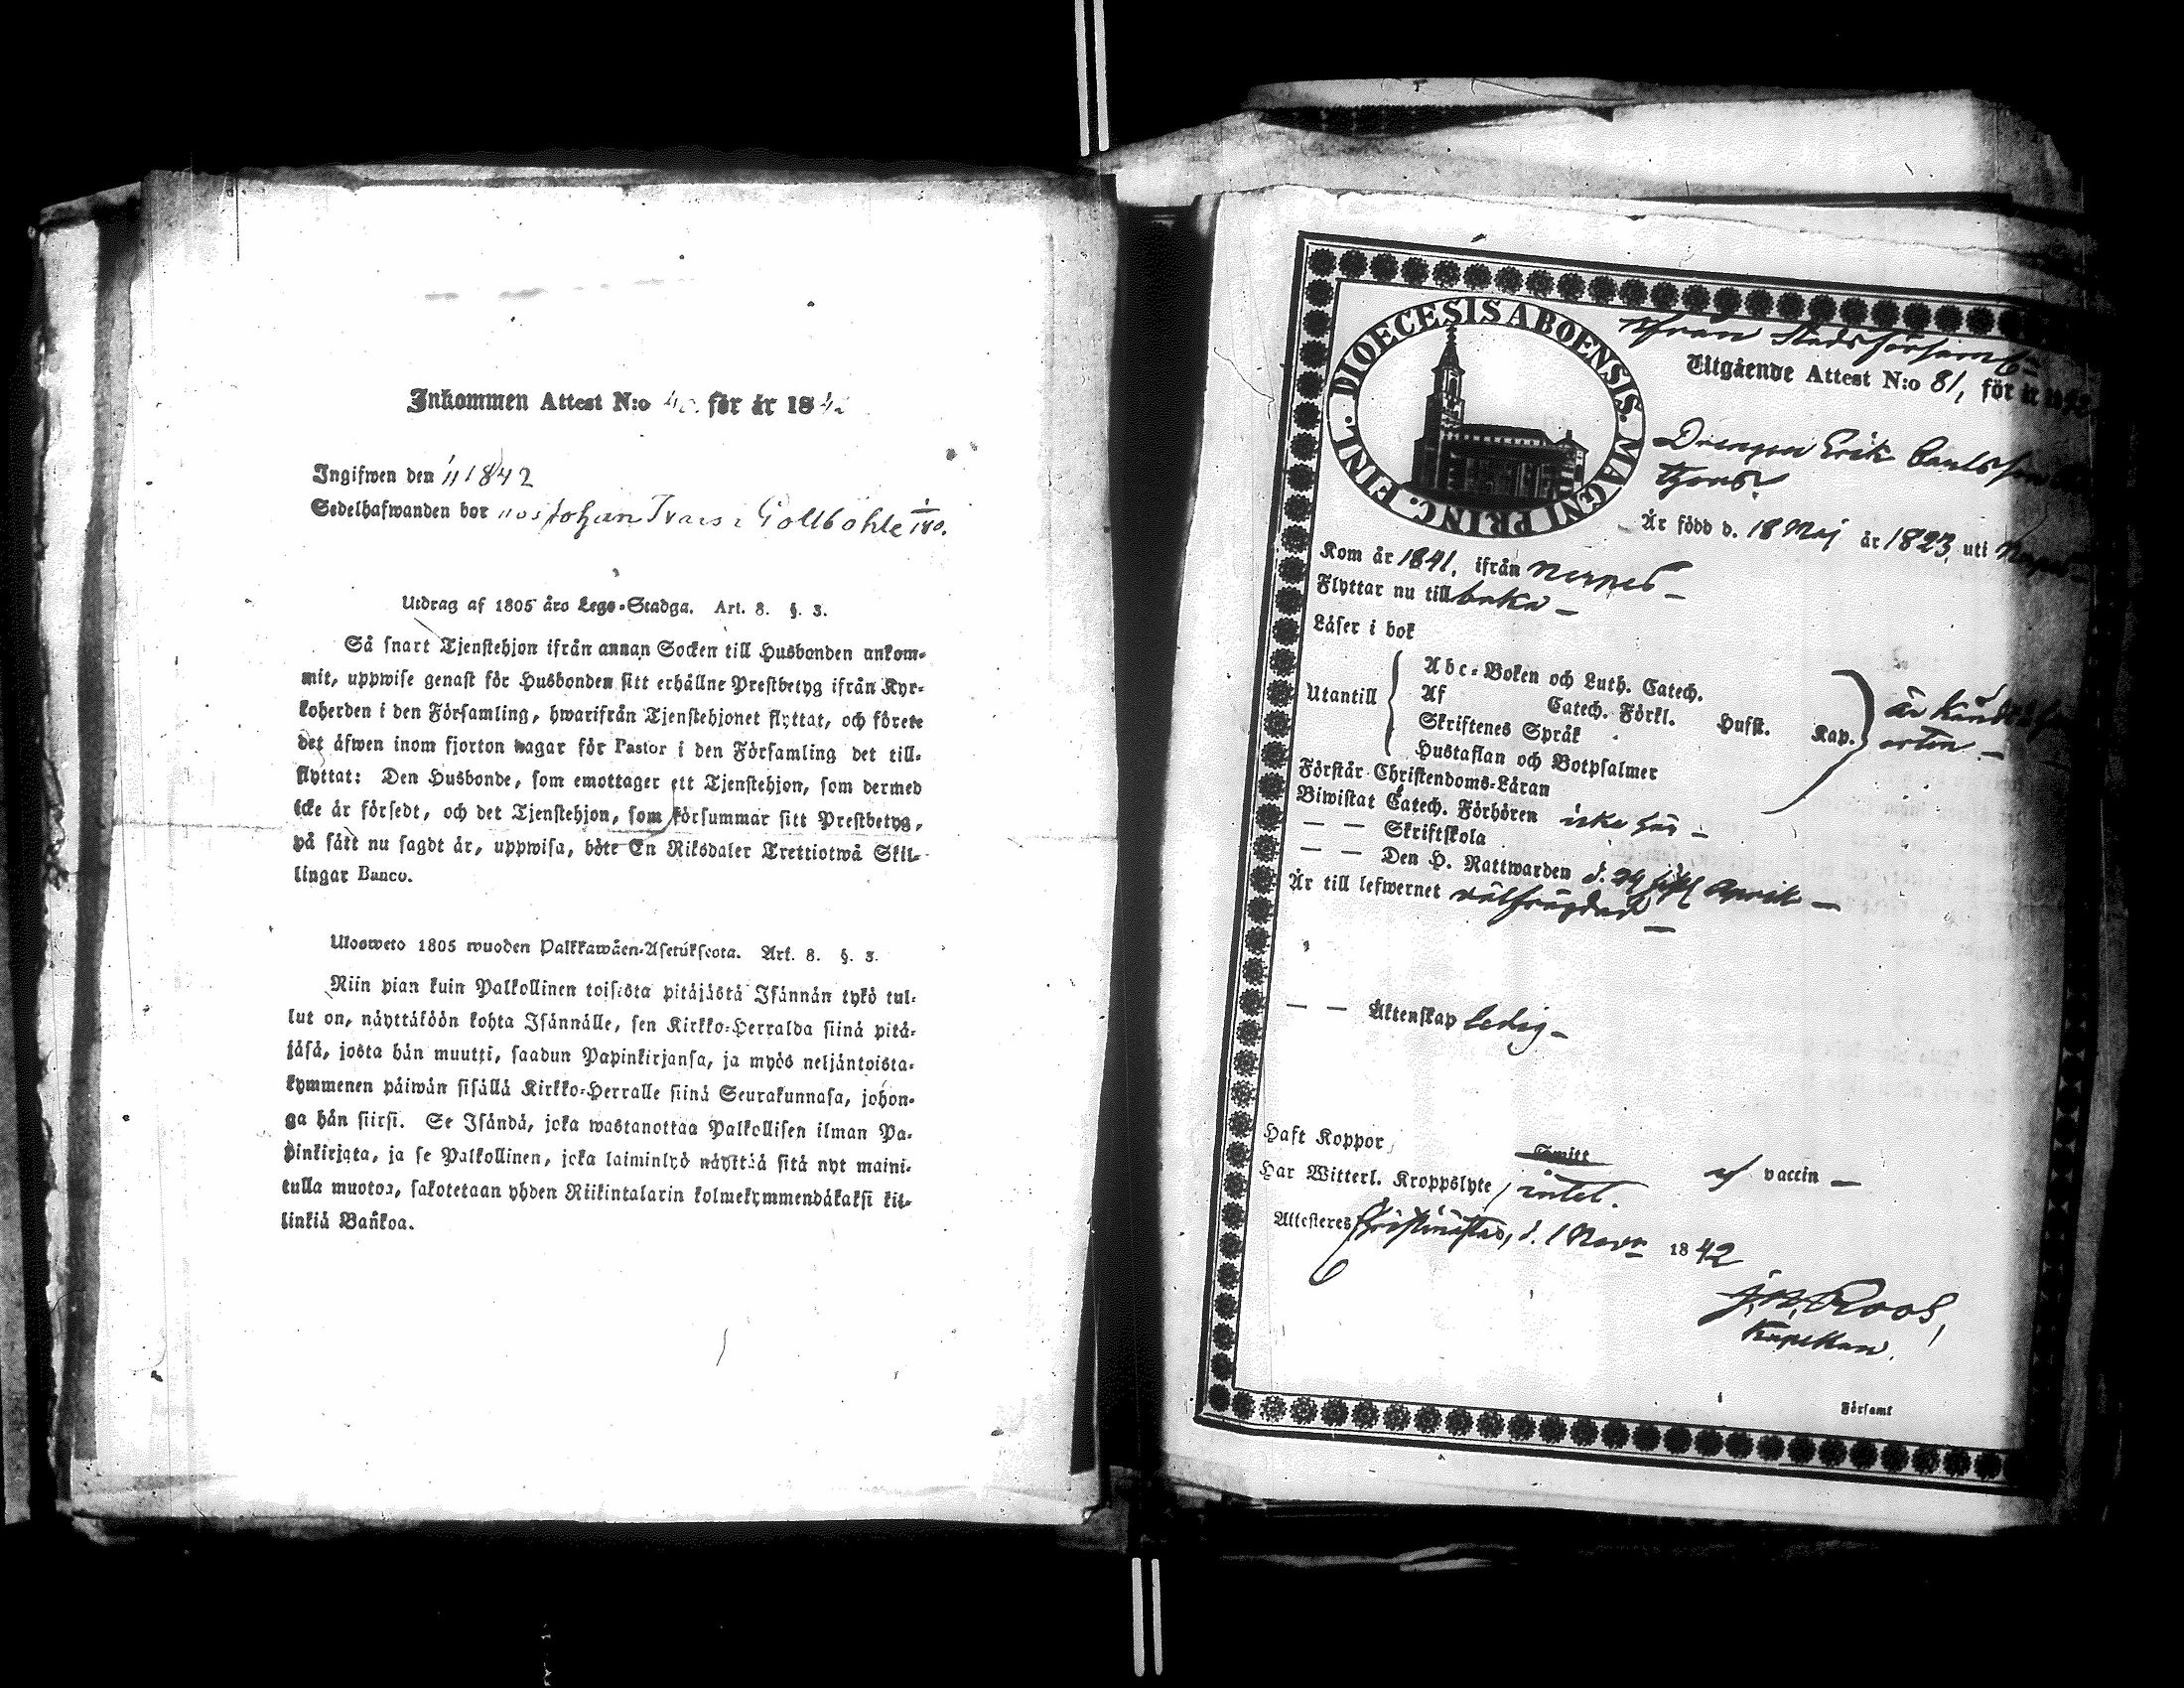 Inkommen Attest N:o 40. för år 1842
Ingifwen den 1842
Sedelhafwanden bor hos Johan Ivars i Gottböhle
Utdrag af 1805 års Lego-Stadga. Art. 8. §. 3.
Så snart Tjenstehjon ifrån annan Socken till Husbonden ankom-
mit, uppwise genast för Husbonden sitt erhållne Prestbetyg ifrån Kyr-
koherden i den Församling, hwarifrån Tjenstehjonet flyttat, och förete
det äfwen inom fjorton dagar för Pastor i den Församling det till-
flyttat: Den Husbonde, som emottager ett Tjenstehjon, som dermed
icke är försedt, och det Tjenstehjon, som försummar sitt Prestbetyg,
på sätt nu sagdt är, uppwisa, böte En Riksdaler Trettiotwå Skil-
lingar Banco.
Ulosweto 1805 wuoden Palkkawäen-Asetuksesta. Art. 8. §. 3.
Niin pian kuin Palkollinen toisesta pitäjästä Isännän tykö tul-
lut on, näyttäköön kohta Isännälle, sen Kirkko-Herralda siinä pitä-
jäsä, josta hän muutti, saadun Papinkirjansa, ja myös neljäntoista-
kymmenen päiwän sisällä Kirkko-Herralle siinä Seurakunnasa, johon-
ga hän siirsi. Se Isändä, joka wastanottaa Palkollisen ilman Pa-
pinkirjata, ja se Palkollinen, joka laiminlyö näyttää sitä nyt maini-
tulla muotoa, sakotetaan yhden Riikintalarin kolmekymmendäkaksi kil-
linkiä Bankoa.
DIOECESIS ABOENSIS. MAGNI PRINC. FINL.
ifrån Stadsförsaml-
Utgående Attest N:o 81, för år
Drengen Erik Carlsson
Är född d. 18 Maj år 1823 uti Nerpes
Kom år 1841, ifrån Nerpes
Flyttar nu till baka
Läser i bok
Utantill
Abc-Boken och Luth. Catech.
Af Catech. Förkl. Husst. Kap.
Skriftenes Språk
Hustaflan och Botpsalmer
är känd å
orten
Förstår Christendoms-Läran
Biwistat Catech. Förhören icke här
— — Skriftskola
— — Den H. Nattwarden d. 24 sistl April
Är till lefwernet välfrägdad
— — Äktenskap ledig
Haft Koppor, Smitt af vaccin
Har Witterl. Kroppslyte, intet.
Attesteres Christinæstad, d. 1 Nov. 1842
J. N. Roos,
Kapellan.
Församl